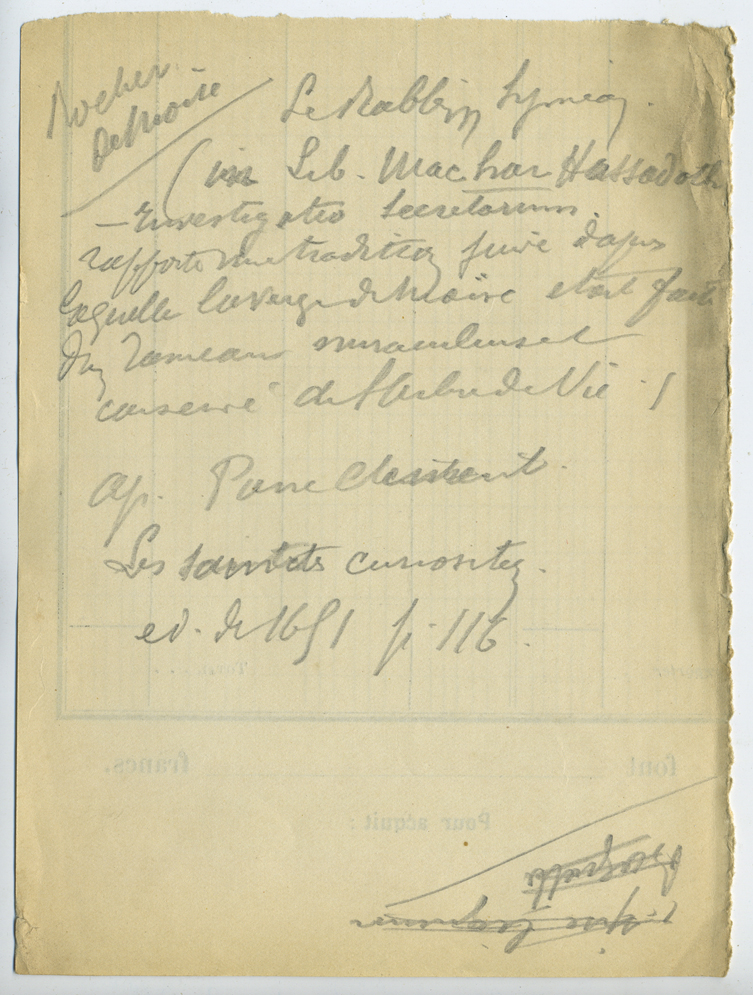 Rocher
de Moïse
Le Rabbin Symeon.
(in Lib. Machar Hassodoth
— Investigatio Secretorum.
rapporte une tradition juive d'après
laquelle la verge de Moïse etait faite
d'un rameau miraculeuset
conservé de l'Arbre de Vie . /
ap. Pierre Clement.
Les saintes curiositez.
ed. de 1651 p. 116.
font
francs.
Pour acquit :